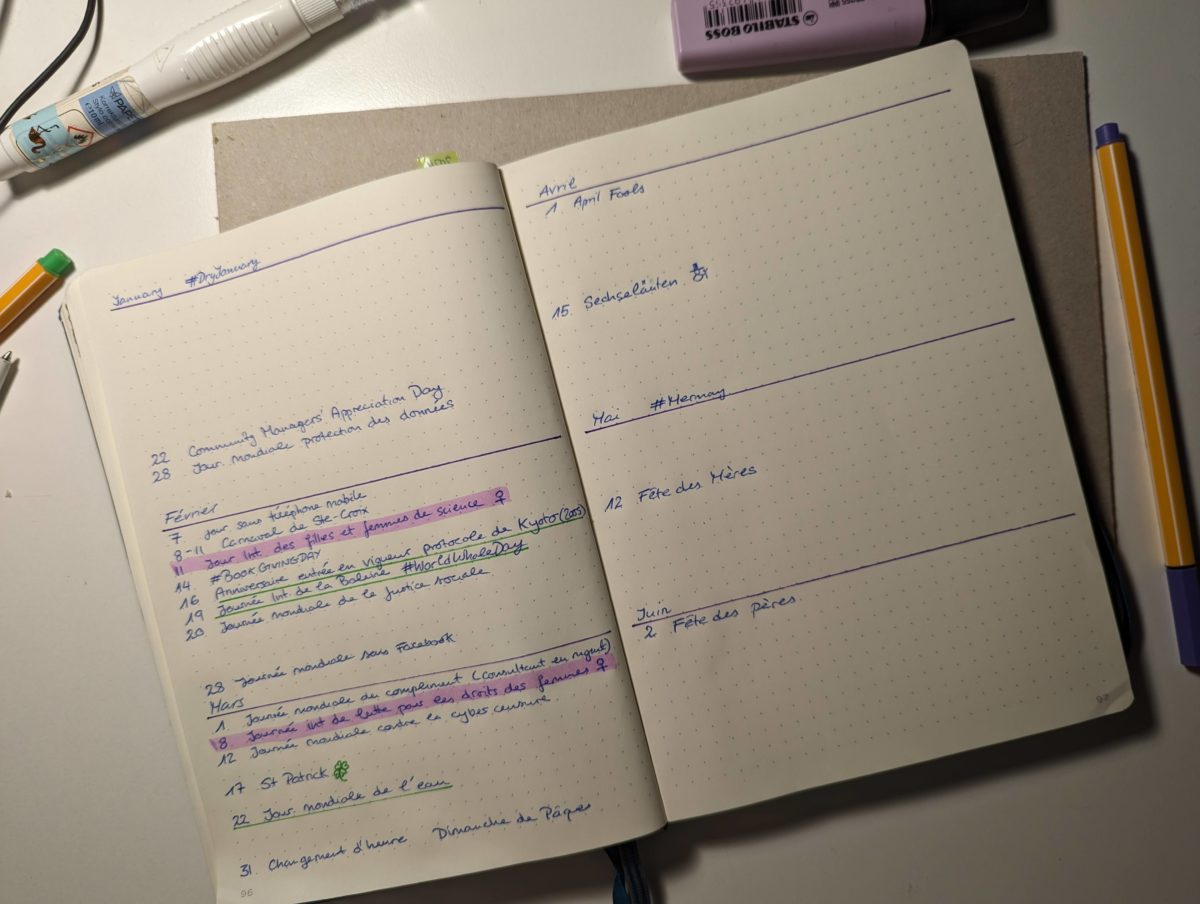 STABILO BOSS
January #DryJanuary
22 Community Managers' Appreciation Day
28 Jour. mondiale protection des données
Février
7 Jour sans téléphone mobile
8-11 Carnaval de Ste-Croix
11 Jour Int. des filles et femmes de science ♀
14. #BOOKGIVINGDAY
16 Anniversaire entrée en vigueur protocole de Kyoto (2005)
19 Journée Int. de la Baleine #WorldWhaleDay
20 Journée mondiale de la justice sociale
28 Journée mondiale sans Facebook
Mars
1. Journée mondiale du compliment (consultant en mgmt)
8. Journée int de lutte pour les droits des femmes ♀
12 Journée mondiale contre la cyber censure
17 St Patrick
22 Jour. mondiale de l'eau
31. Changement d'heure Dimanche de Pâques
96
Avril
1. April Fools
15. Sechseläuten
Mai #Mermay
12 Fête des Mères
Juin
2 Fête des pères
97